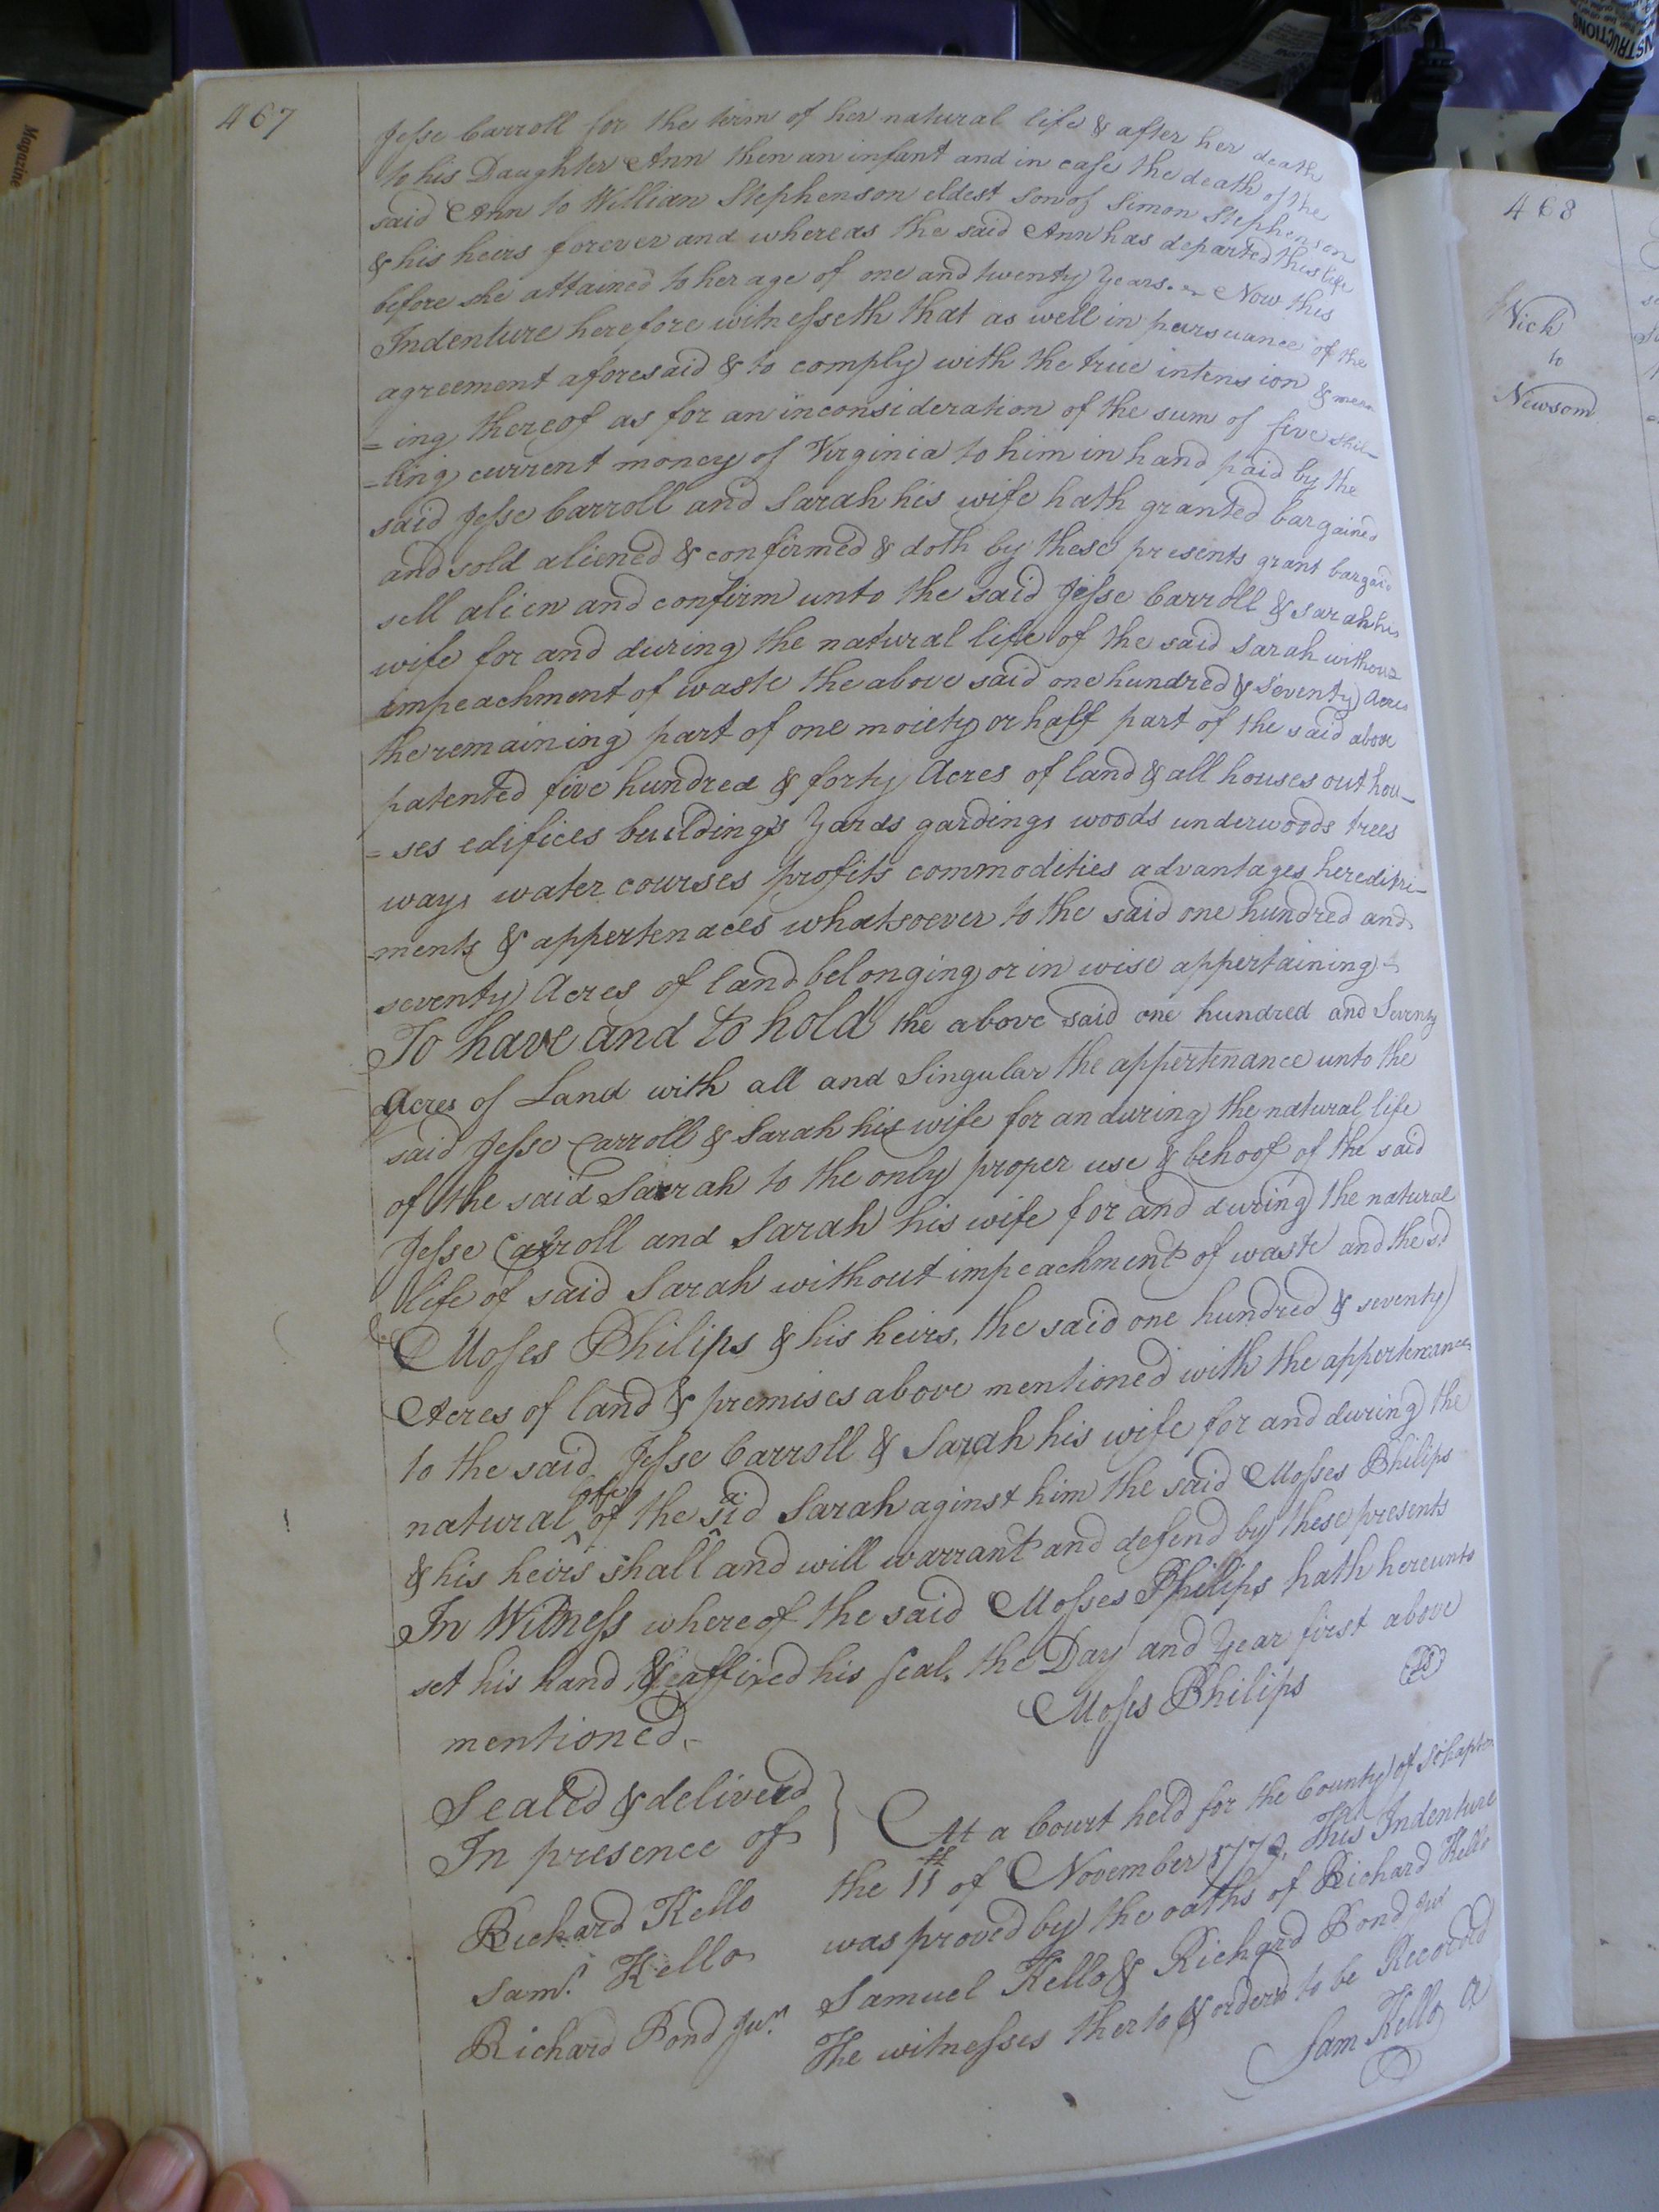 467
Jesse Carroll for the term of her natural life & after her death
to his Daughter Ann then an infant and in case the death of the
said Ann to Willian Stephenson eldest son of Simon Stephenson
& his heirs forever and whereas the said Ann has departed this life
before she attained to her age of one and twenty years. Now this
Indenture herefore witnesseth that as well in pursuance of the
agreement aforesaid & to comply with the true intension & mean
=ing thereof as for an inconsideration of the sum of five shil-
-ling current money of Virginia to him in hand paid by the
said Jesse Carroll and Sarah his wife hath granted bargained
and sold aliened & confirmed & doth by these presents grant bargain
sell alien and confirm unto the said Jesse Carroll & Sarah his
wife for and during the natural life of the said Sarah without
impeachment of waste the above said one hundred & Seventy Acres
the remaining part of one moiety or half part of the said above
patented five hundred & forty Acres of land & all houses out hou-
=ses edifices buildings Yards gardings woods underwoods trees
ways water courses profits commodities advantages hereditri-
-ments & appertenaces whatsoever to the said one hundred and
seventy Acres of land belonging or in wise appertaining
To have and to hold the above said one hundred and Seventy
Acres of Land with all and Singular the appertenance unto the
said Jesse Carroll & Sarah his wife for an during the natural life
of the said Sarah to the only proper use & behoof of the said
Jesse Carroll and Sarah his wife for and during the natural
life of said Sarah without impeachment of waste and the sd
Moses Philips & his heirs, the said one hundred & seventy
Acres of land & premises above mentioned with the appertenances
to the said Jesse Carroll & Sarah his wife for and during the
natural life of the said Sarah aginst him the said Mosses Philips
& his heirs shall and will warrant and defend by these presents
In Witness whereof the said Mosses Philips hath hereunto
set his hand & affixed his seal, the Day and Year first above
mentioned.
Moses Philips
Sealed & deliverd
In presence of
Richard Kello
Saml. Kello
Richard Pond Junr
At a Court held for the County of Sohapton
the 11 of November This Indenture
was proved by the oaths of Richard Kello
Samuel Kello & Richard Pond Junr
The witnesses therto & orderd to be Recorded
Sam Kello
468
Vick
to
Newsom
Magazine
INSTRUCTIONS